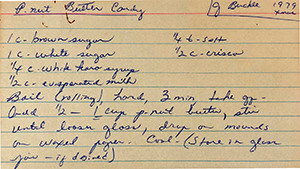 P-nut Butter Candy   G Buckle 1979
1 c - brown sugar   1/4 t - salt
1 c - white sugar   1/2 c - crisco
1/4 c - white karo syrup
1/2 c - evaporated milk
Boil (rolling), hard, 3 min take off -
Add 1/2 - 1 cup p-nut butter, stir
until loses gloss, drop on mounds
on waxed paper. Cool - (Store in glass
jar - if desired)